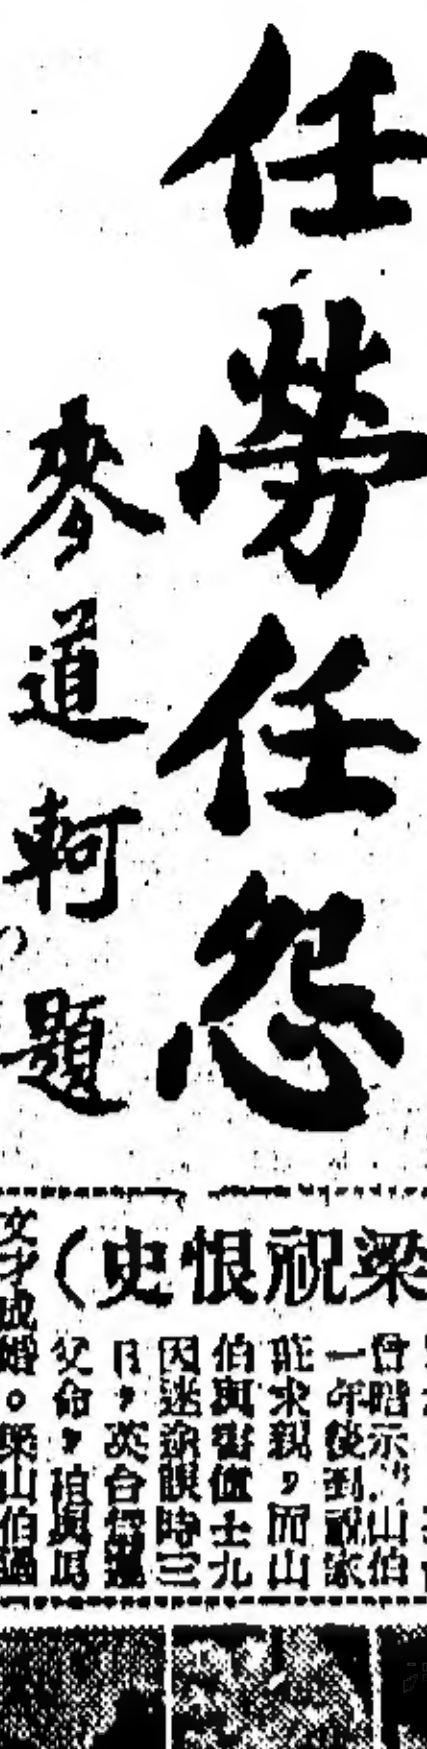 任勞任怨
麥道軻題
梁祝恨史（
曾暗示山伯
一年後到祝家
求親，而山
伯與書僮士九
因迷途誤時三
日，英台
父命，與馬
文才成婚。梁山伯過